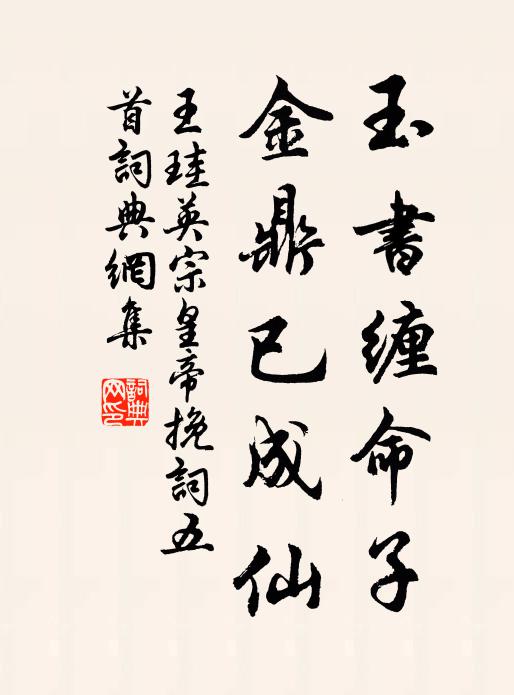 玉書纏命子
金鼎已成仙
王珪英宗皇帝挽詞五
首詞典網集
詞典
网印